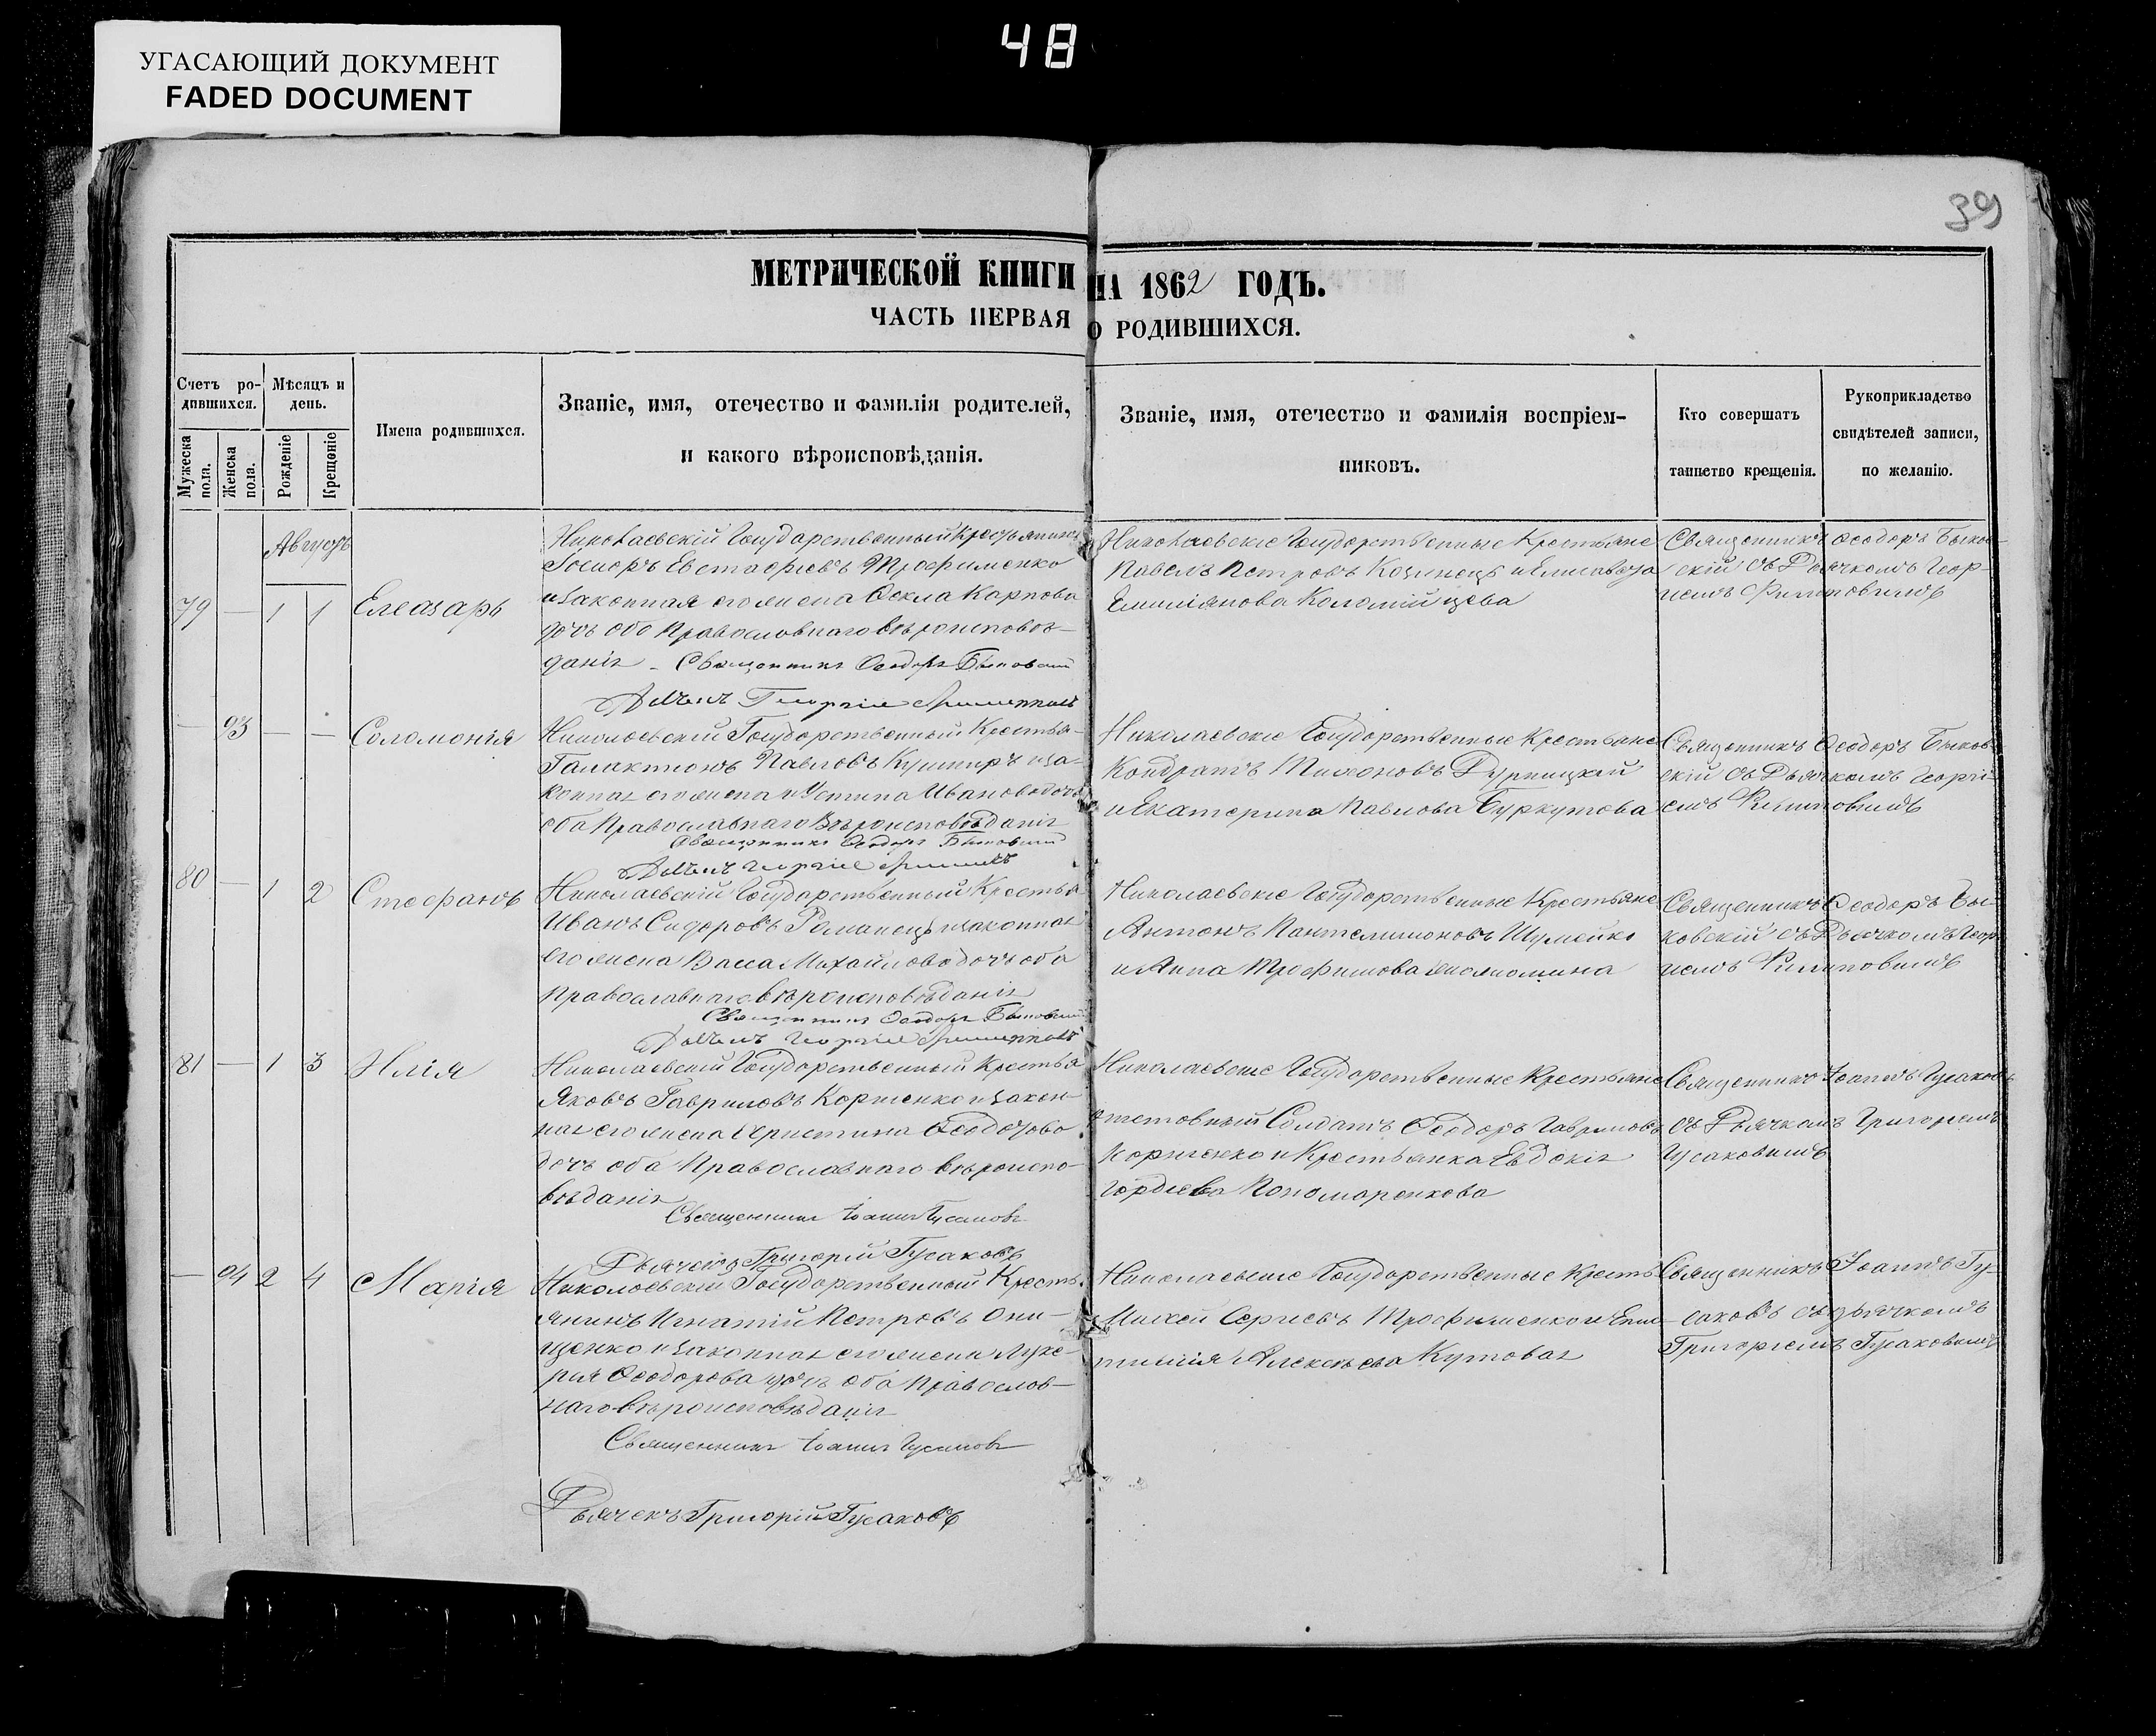 48
УГАСАЮЩИЙ ДОКУМЕНТ
FADED DOCUMENT
39
МЕТРИЧЕСКОЙ КНИГИ НА 1862 ГОДЪ.
ЧАСТЬ ПЕРВАЯ О РОДИВШИХСЯ.
Счетъ ро-
дившихся.
Мужеска пола.
Женска пола.
Мѣсяцъ и
день.
Рожденіе
Крещеніе
Имена родившихся.
Званіе, имя, отечество и фамилія родителей,
и какого вѣроисповѣданія.
Званіе, имя, отечество и фамилія воспріем-
никовъ.
Кто совершатъ
таинство крещенія.
Рукоприкладство
свидѣтелей записи,
по желанію.
Августъ
79 — 1 1 Елеазаръ
Николаевскій Государственный Крестьянинъ
Евстафіевъ Трофименко
и законная его жена Ѳекла Карпова
дочь оба Православнаго вѣроисповѣ-
данія - Священникъ Ѳеодоръ Быковскій
Николаевскіе Государственные Крестьяне
Павелъ Петровъ Козинецъ и Елисавета
Емиліянова Коломійцева
Священникъ Ѳеодоръ Быков-
скій съ Дьячкомъ Геор-
гіемъ
— 93 — — Соломонія
Николаевскій Государственный Крестья-
Галактіонъ Павловъ Кушниръ и за-
конная его жена Устина Иванова дочь
оба Православнаго Вѣроисповѣданія
Священникъ Ѳеодоръ Быковскій
Николаевскіе Государственные Крестьяне
Кондратъ Тихоновъ
и Екатерина Павлова Буркутова
Священникъ Ѳеодоръ Быков-
скій съ Дьячкомъ Георгі-
емъ
80 — 1 2 Стефанъ
Николаевскій Государственный Крестья-
Иванъ Сидоровъ Романецъ и законная
его жена Васса Михайлова дочь оба
Православнаго вѣроисповѣданія
Священникъ Ѳеодоръ Быковскій
Николаевскіе Государственные Крестьяне
Антонъ Пантелимоновъ Шумейко
и Анна Трофимова
Священникъ Ѳеодоръ Бы-
ковскій съ Дьячкомъ Геор-
гіемъ
81 — 1 3 Илія
Николаевскій Государственный Крестья-
Яковъ Гавриловъ Корженко и закон-
ная его жена Христина Ѳеодотова
дочь оба Православнаго вѣроиспо-
вѣданія
Священникъ Іоаннъ Гусаковъ
Дьячекъ Григорій Гусаковъ
Николаевскіе Государственные Крестьяне
Солдатъ Ѳеодоръ Гавриловъ
Корженко и Крестьянка Евдокія
Гордіева Пономаренкова
Священникъ Іоаннъ Гусаковъ
съ Дьячкомъ Григоріемъ
Гусаковымъ
— 94 2 4 Марія
Николаевскій Государственный Кресть-
янинъ Игнатій Петровъ Они-
щенко и законная его жена Луке-
рія Ѳеодорова дочь оба Православ-
наго вѣроисповѣданія
Священникъ Іоаннъ Гусаковъ
Дьячекъ Григорій Гусаковъ
Николаевскіе Государственные Кресть-
Сергіевъ Трофименко и
Алексѣева Кутовая
Священникъ Іоаннъ Гу-
саковъ съ дьячкомъ
Григоріемъ Гусаковымъ